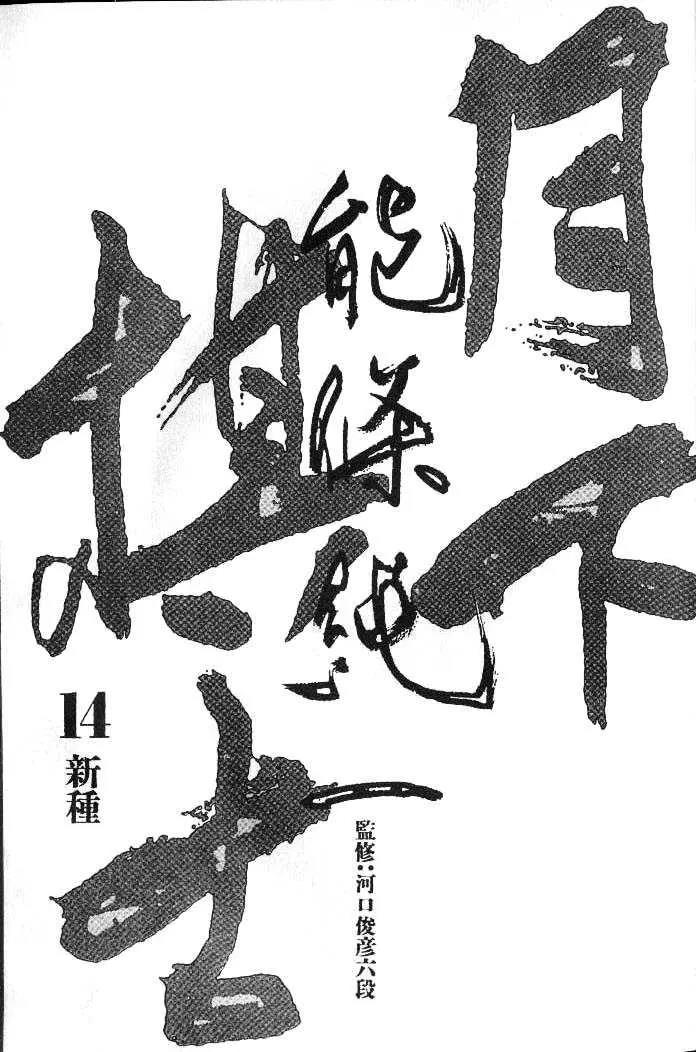 月下
棋士
能條純一
14
新種
監修:河口俊彦六段